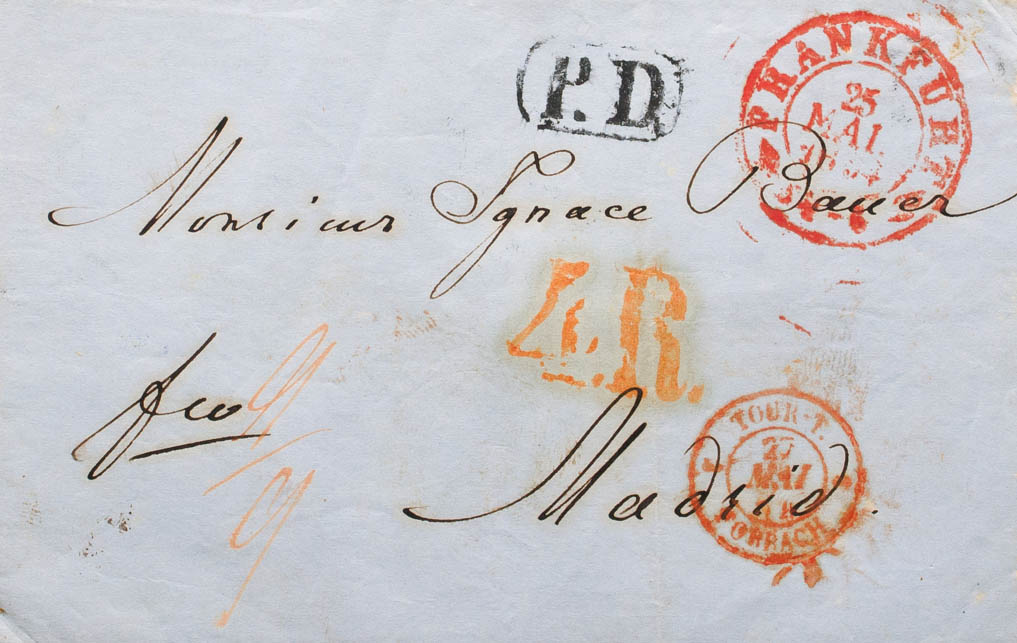 P.D
FRANKFURT
25
MAI
Monsieur Ignace Bauer
4.R.
fco
TOUR-T.
27
MAI
FORBACH
Madrid.